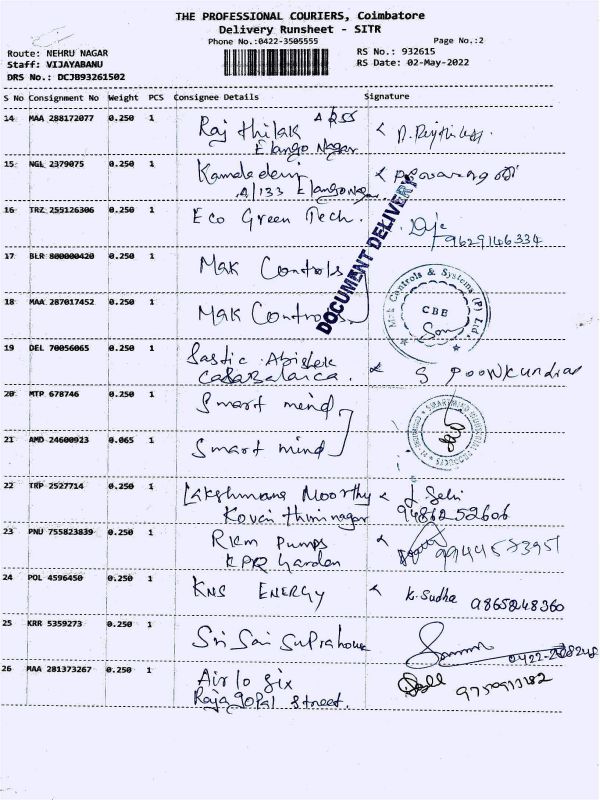 THE PROFESSIONAL COURIERS, Coimbatore
Delivery Runsheet - SITR
Phone No.:0422-3505555
Page No.:2
Route: NEHRU NAGAR
Staff: VIJAYABANU
DRS No.: DCJB93261502
RS No.: 932615
RS Date: 02-May-2022
S No Consignment No Weight PCS Consignee Details Signature
14 MAA 288172077 0.250 1 Raj thilak
Elango Nagar
15 NGL 2379075 0.250 1 Kamaladevi
A/133 Elango Nagar
16 TRZ 255126306 0.250 1 Eco Green Tech.
9629146334
DOCUMENT DELIVERY
17 BLR 800000420 0.250 1 Mak Controls
18 MAA 287017452 0.250 1 Mak Controls
Mak Controls & Systems (P) Ltd.
CBE
19 DEL 70056065 0.250 1 Abishek
Casabalanca. S Poonkundran
20 MTP 678746 0.250 1 Smart mind
21 AMD 24600923 0.065 1 Smart mind
22 TRP 2527714 0.250 1 Lakshmana Moorthy
Kovai thirunagar 9486252606
23 PNU 755823839 0.250 1 RKM Pumps
KPR Garden 9944553951
24 POL 4596450 0.250 1 KNS ENERGY K. Sudha 9865248360
25 KRR 5359273 0.250 1 Sri Sai
26 MAA 281373267 0.250 1 Air lo Six
Rajagopal Street.